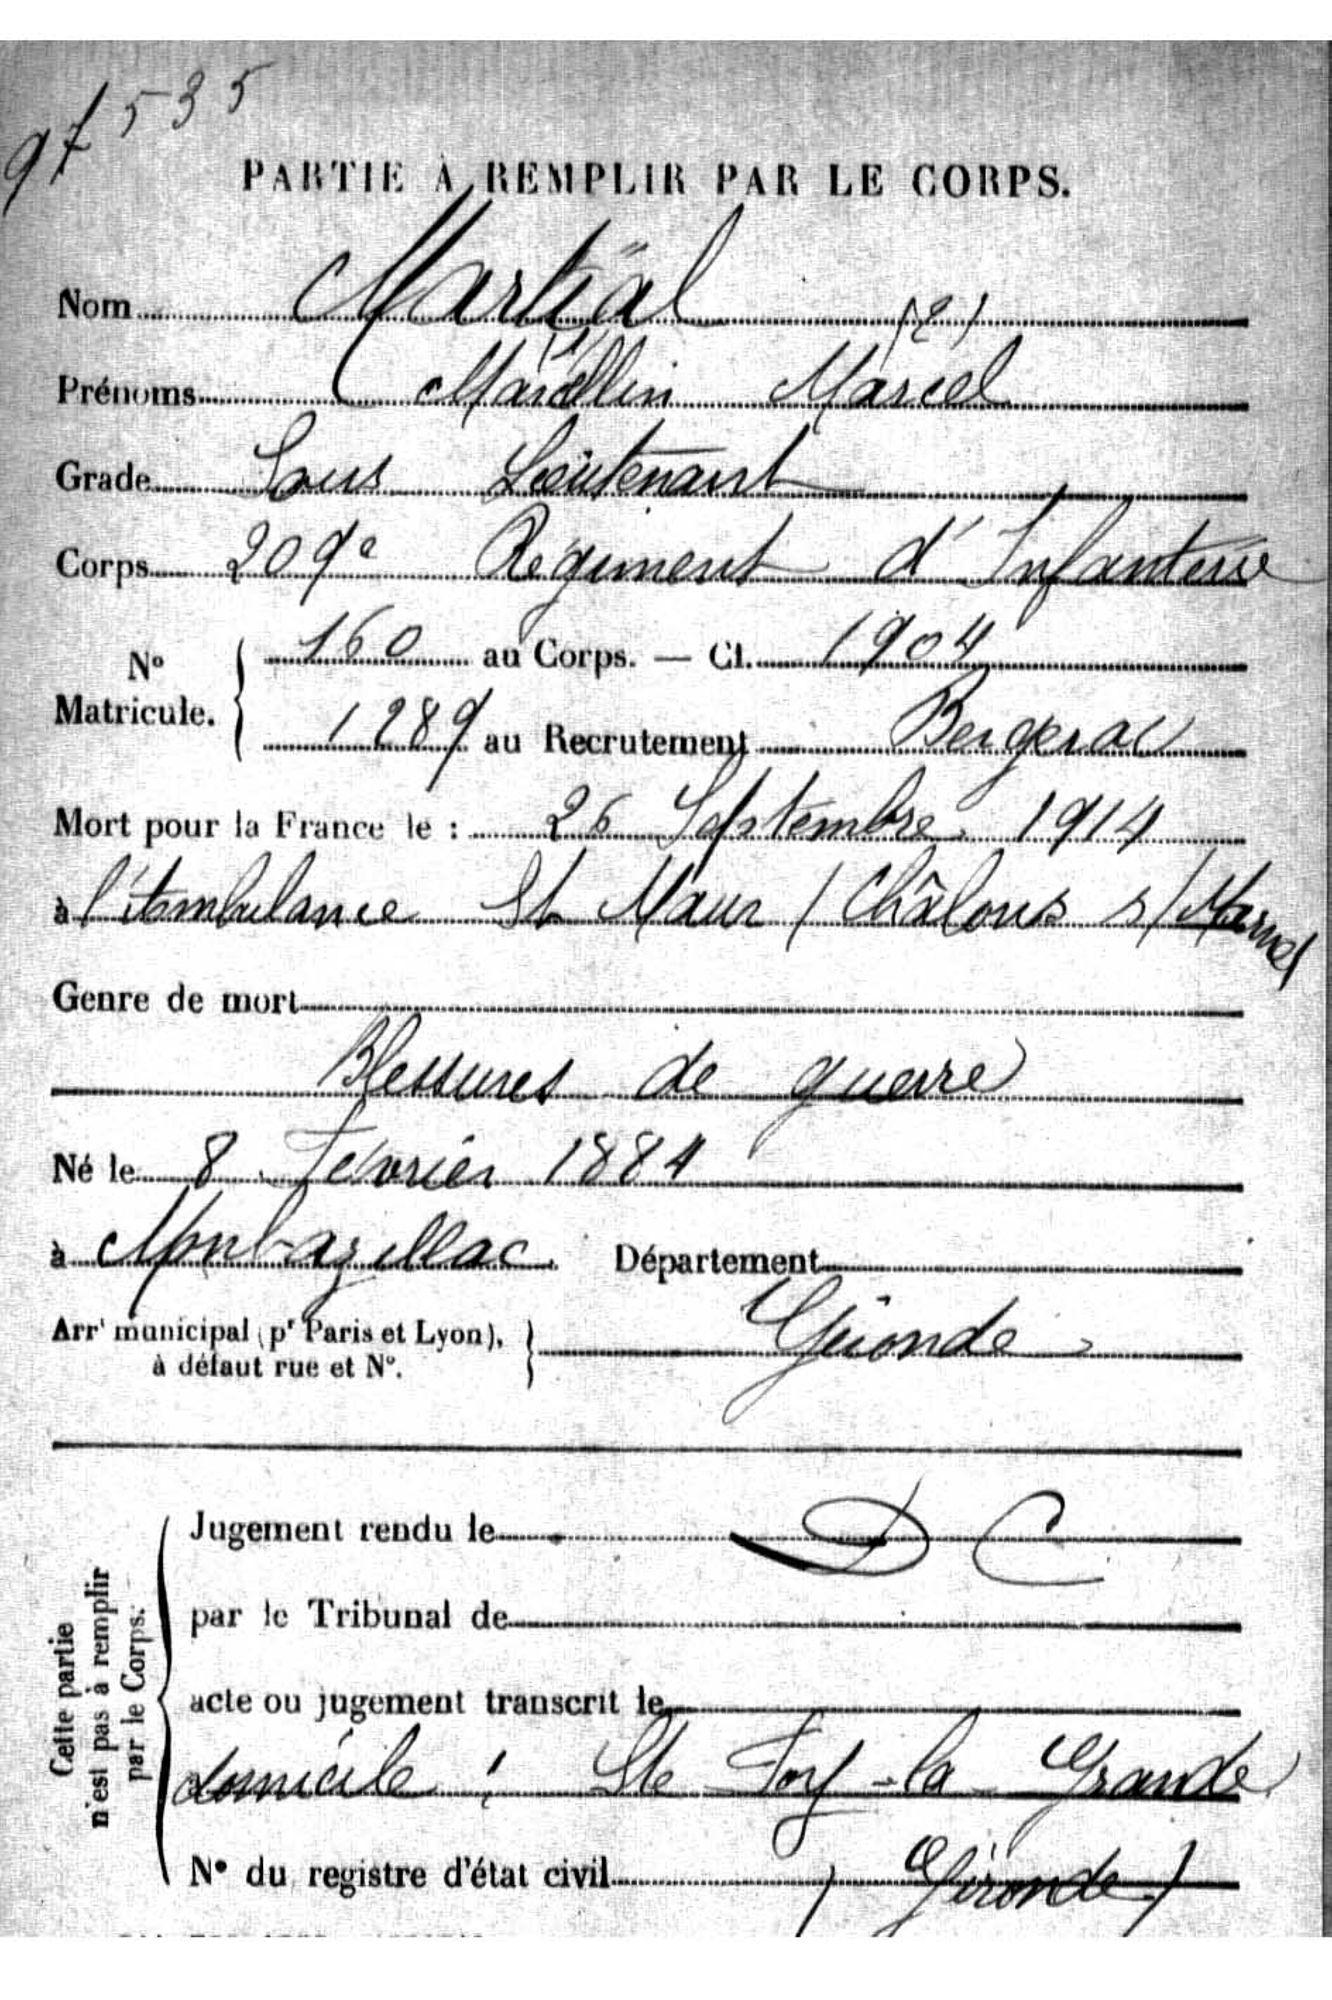 97535
PARTIE À REMPLIR PAR LE CORPS.
Nom Martial
(1) (2)
Prénoms Marcellin Marcel
Grade Sous Lieutenant
Corps 209e Régiment d'Infanterie
No Matricule. { 160 au Corps. — Cl. 1904
1289 au Recrutement Bergerac
Mort pour la France le : 26 Septembre 1914
à l'Ambulance St Maur (Châlons s/Marne)
Genre de mort
Blessures de guerre
Né le 8 Février 1884
à Monbazillac Département
Arrt municipal (pr Paris et Lyon), } Gironde
à défaut rue et No.
Cette partie n'est pas à remplir par le Corps.
Jugement rendu le D C
par le Tribunal de
acte ou jugement transcrit le
domicile : Ste Foy-la-Grande
No du registre d'état civil (Gironde)